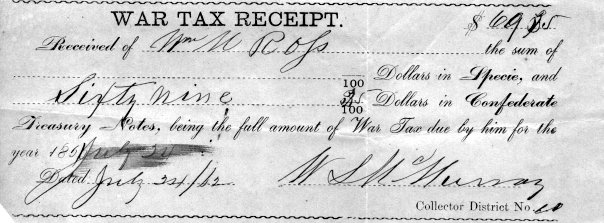 WAR TAX RECEIPT. $69.25
Received of Wm M Ross the sum of
100 Dollars in Specie, and
Sixty nine 25/100 Dollars in Confederate
Treasury Notes, being the full amount of War Tax due by him for the
year 186 July 24
Dated July 24/62 W S McMurray
Collector District No.